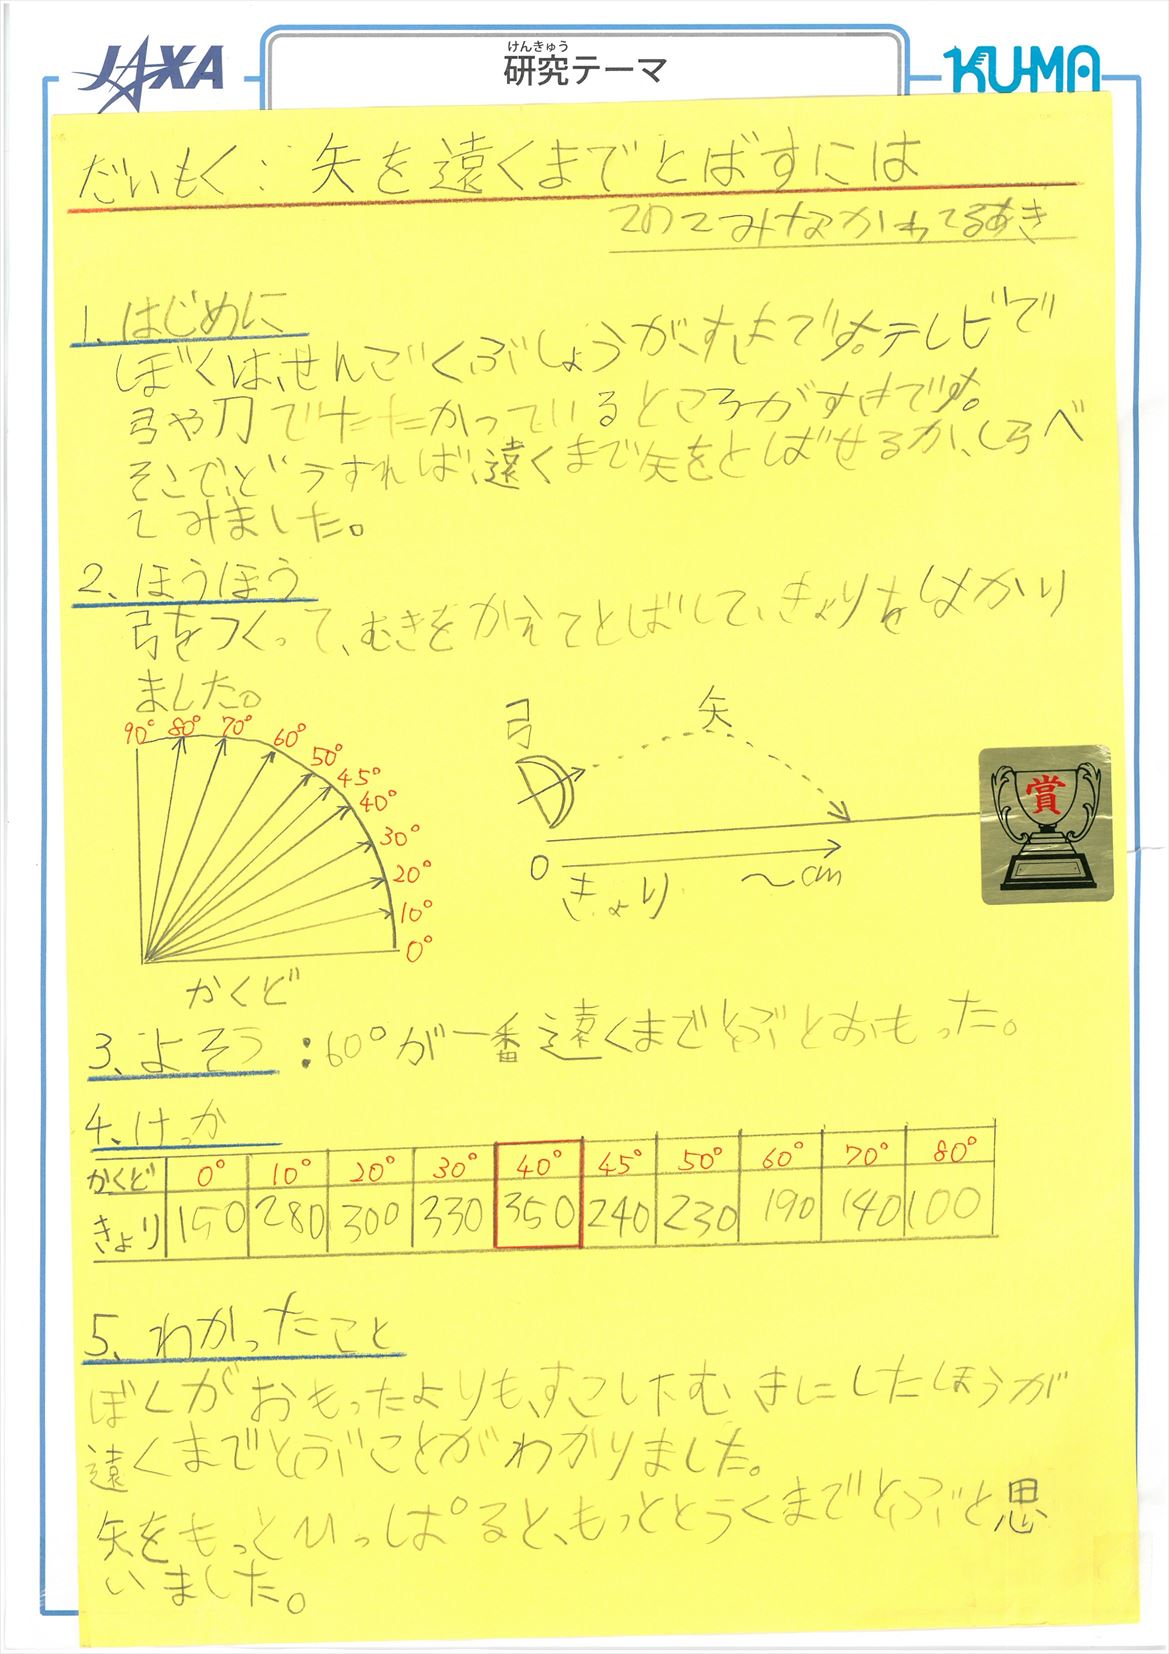 JAXA
けんきゅう
研究テーマ
KU-MA
だいもく：矢を遠くまでとばすには
2の2みなかわてるあき
1、はじめに
ぼくは、せんごくぶしょうが、すきです。テレビで
弓や刀でたたかっているところがすきです。
そこで、どうすれば、遠くまで矢をとばせるか、しらべ
てみました。
2、ほうほう
弓をつくって、むきをかえてとばして、きょりをはかり
ました。
90° 80° 70° 60° 50° 45° 40° 30° 20° 10° 0°
かくど
弓
矢
0
きょり
〜cm
賞
3、よそう：60°が一番遠くまでとぶとおもった。
4、けっか
かくど 0° 10° 20° 30° 40° 45° 50° 60° 70° 80°
きょり 150 280 300 330 350 240 230 190 140 100
5、わかったこと
ぼくがおもったよりも、すこし下むきにしたほうが
遠くまでとぶことがわかりました。
矢をもっとひっぱると、もっととうくまでとぶと思
いました。